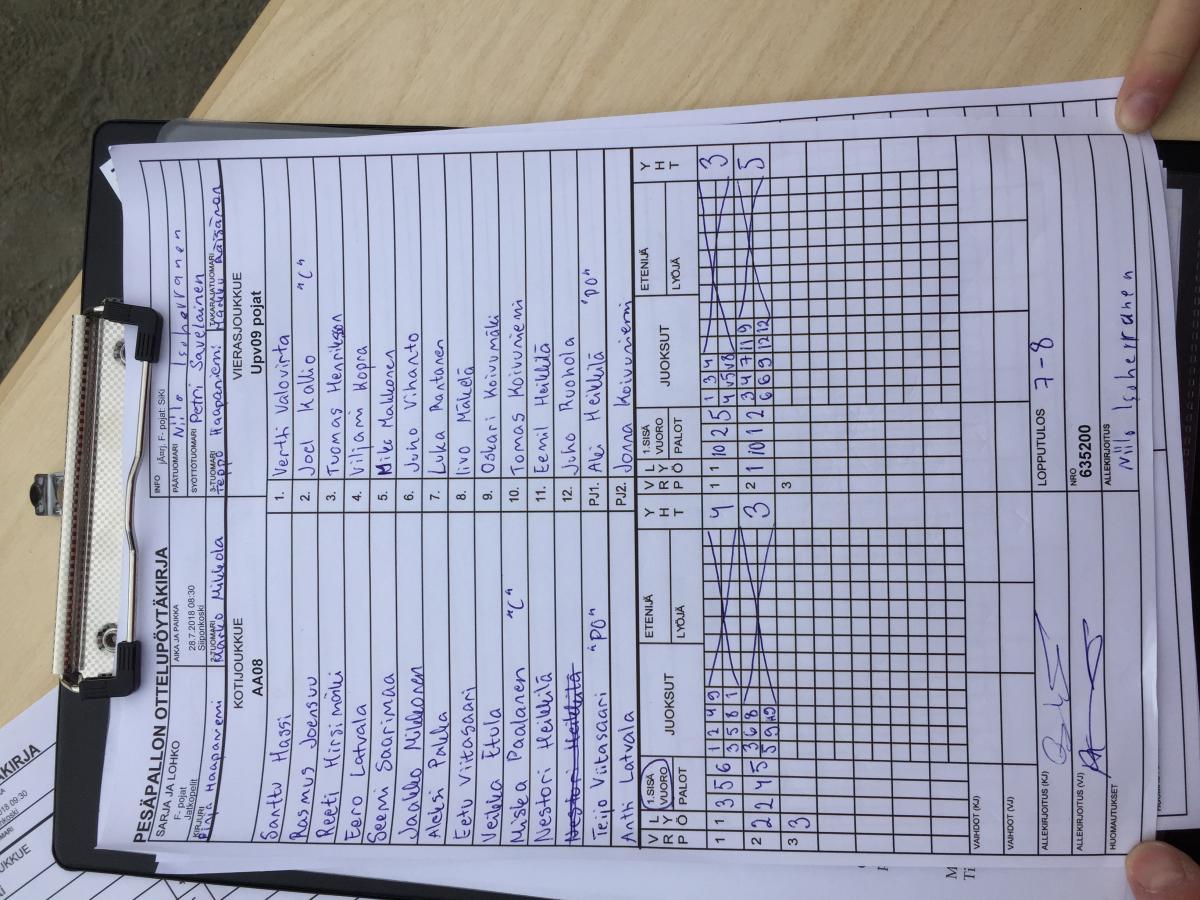 PESÄPALLON OTTELUPÖYTÄKIRJA
SARJA JA LOHKO
F- pojat
Jatkopelit
AIKA JA PAIKKA
28.7.2018 08:30
Siiponkoski
INFO jÄ¤rj. F- pojat: SiKi
PÄÄTUOMARI Niilo Isoherranen
SYÖTTÖTUOMARI Petri Savelainen
KIRJURI Pinja Haapaniemi
2-TUOMARI Marko Mikkola
3-TUOMARI Teppo Haapaniemi
TAKARAJATUOMARI Markku Räisänen
KOTIJOUKKUE
AA08
VIERASJOUKKUE
Upv09 pojat
Santtu Hassi 1. Vertti Valovirta
Rasmus Joensuu 2. Joel Kallio "C"
Reeti Hirsimäki 3. Tuomas Henriksson
Eero Latvala 4. Viljami Kopra
Seemi Saarimaa 5. Mike Makkonen
Jaakko Mikkonen 6. Juho Vihanto
Aleksi Pakka 7. Luka Rantanen
Eetu Viitasaari 8. Iivo Mäkelä
Veikka Etula 9. Oskari Koivumäki
Miska Paalanen "C" 10. Tomas Koivuniemi
Nestori Heikkilä 11. Eemil Heikkilä
Nestori Heikkilä 12. Juho Ruohola
Teijo Viitasaari "PO" PJ1. Aki Heikkilä "PO"
Antti Latvala PJ2. Jonna Koivuniemi
V R P L Y Ö 1.SISÄ VUORO PALOT JUOKSUT ETENIJÄ LYÖJÄ Y H T V R P L Y Ö 1.SISÄ VUORO PALOT JUOKSUT ETENIJÄ LYÖJÄ Y H T
1 1 3 5 6 1 2 4 9 4 1 1 10 2 5 1 3 4 3
3 5 8 1 4 5 8
2 2 2 4 5 3 6 8 3 2 1 10 1 2 3 4 7 11 9 5
5 9 10 6 6 9 12 12
3 3 3
VAIHDOT (KJ)
VAIHDOT (VJ)
ALLEKIRJOITUS (KJ)
LOPPUTULOS 7-8
ALLEKIRJOITUS (VJ)
NRO
635200
HUOMAUTUKSET
ALLEKIRJOITUS
Niilo Isoherranen